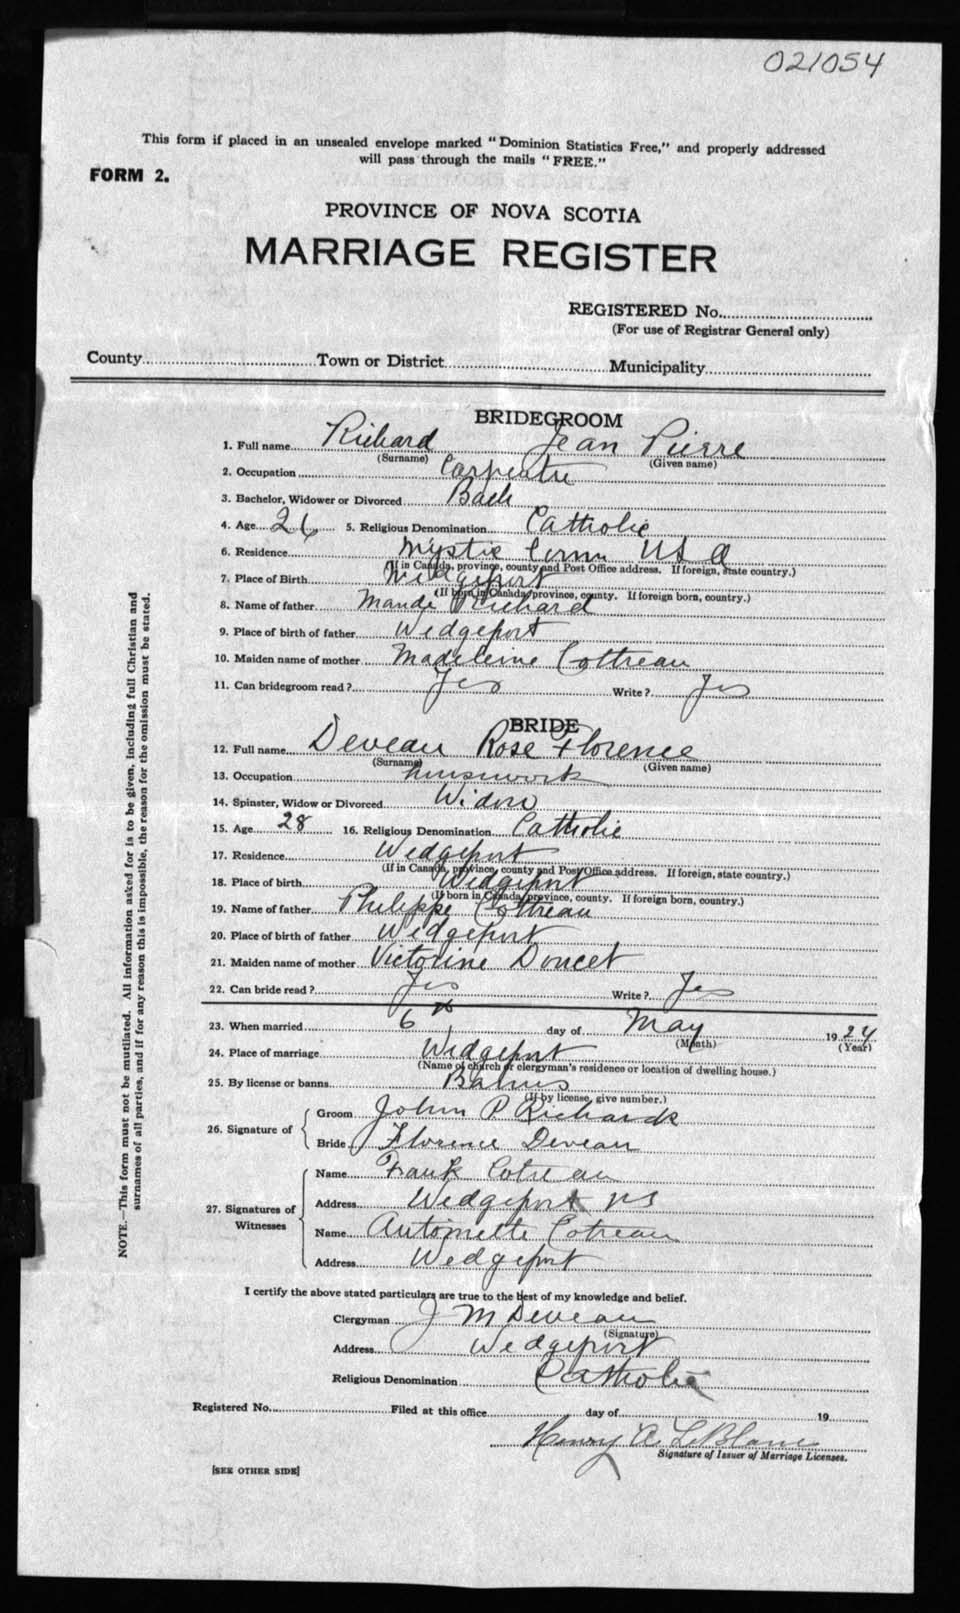 021054
This form if placed in an unsealed envelope marked "Dominion Statistics Free," and properly addressed
will pass through the mails "FREE."
FORM 2.
PROVINCE OF NOVA SCOTIA
MARRIAGE REGISTER
REGISTERED No.
(For use of Registrar General only)
County Town or District Municipality
BRIDEGROOM
1. Full name Richard Jean Pierre
(Surname) (Given name)
2. Occupation Carpentre
3. Bachelor, Widower or Divorced Bach
4. Age 26 5. Religious Denomination Catholic
6. Residence Mystic Conn USA
(If in Canada, province, county and Post Office address. If foreign, state country.)
7. Place of Birth Wedgeport
(If born in Canada, province, county. If foreign born, country.)
8. Name of father Mande Richard
9. Place of birth of father Wedgeport
10. Maiden name of mother Madeleine Cottreau
11. Can bridegroom read? Yes Write? Yes
BRIDE
12. Full name Deveau Rose Florence
(Surname) (Given name)
13. Occupation housework
14. Spinster, Widow or Divorced Widow
15. Age 28 16. Religious Denomination Catholic
17. Residence Wedgeport
(If in Canada, province, county and Post Office address. If foreign, state country.)
18. Place of birth Wedgeport
(If born in Canada, province, county. If foreign born, country.)
19. Name of father Philippe Cottreau
20. Place of birth of father Wedgeport
21. Maiden name of mother Victorine Doucet
22. Can bride read? Yes Write? Yes
23. When married 6th day of May 1924
(Month) (Year)
24. Place of marriage Wedgeport
(Name of church or clergyman's residence or location of dwelling house.)
25. By license or banns Banns
(If by license, give number.)
26. Signature of
Groom John P Richards
Bride Florence Deveau
27. Signatures of Witnesses
Name Frank Cotreau
Address Wedgeport NS
Name Antoinette Cotreau
Address Wedgeport
I certify the above stated particulars are true to the best of my knowledge and belief.
Clergyman J M Deveau
(Signature)
Address Wedgeport
Religious Denomination Catholic
Registered No. Filed at this office day of 19
Henry A LeBlanc
Signature of Issuer of Marriage Licenses.
[SEE OTHER SIDE]
NOTE.—This form must not be mutilated. All information asked for is to be given, including full Christian and
surnames of all parties, and if for any reason this is impossible, the reason for the omission must be stated.